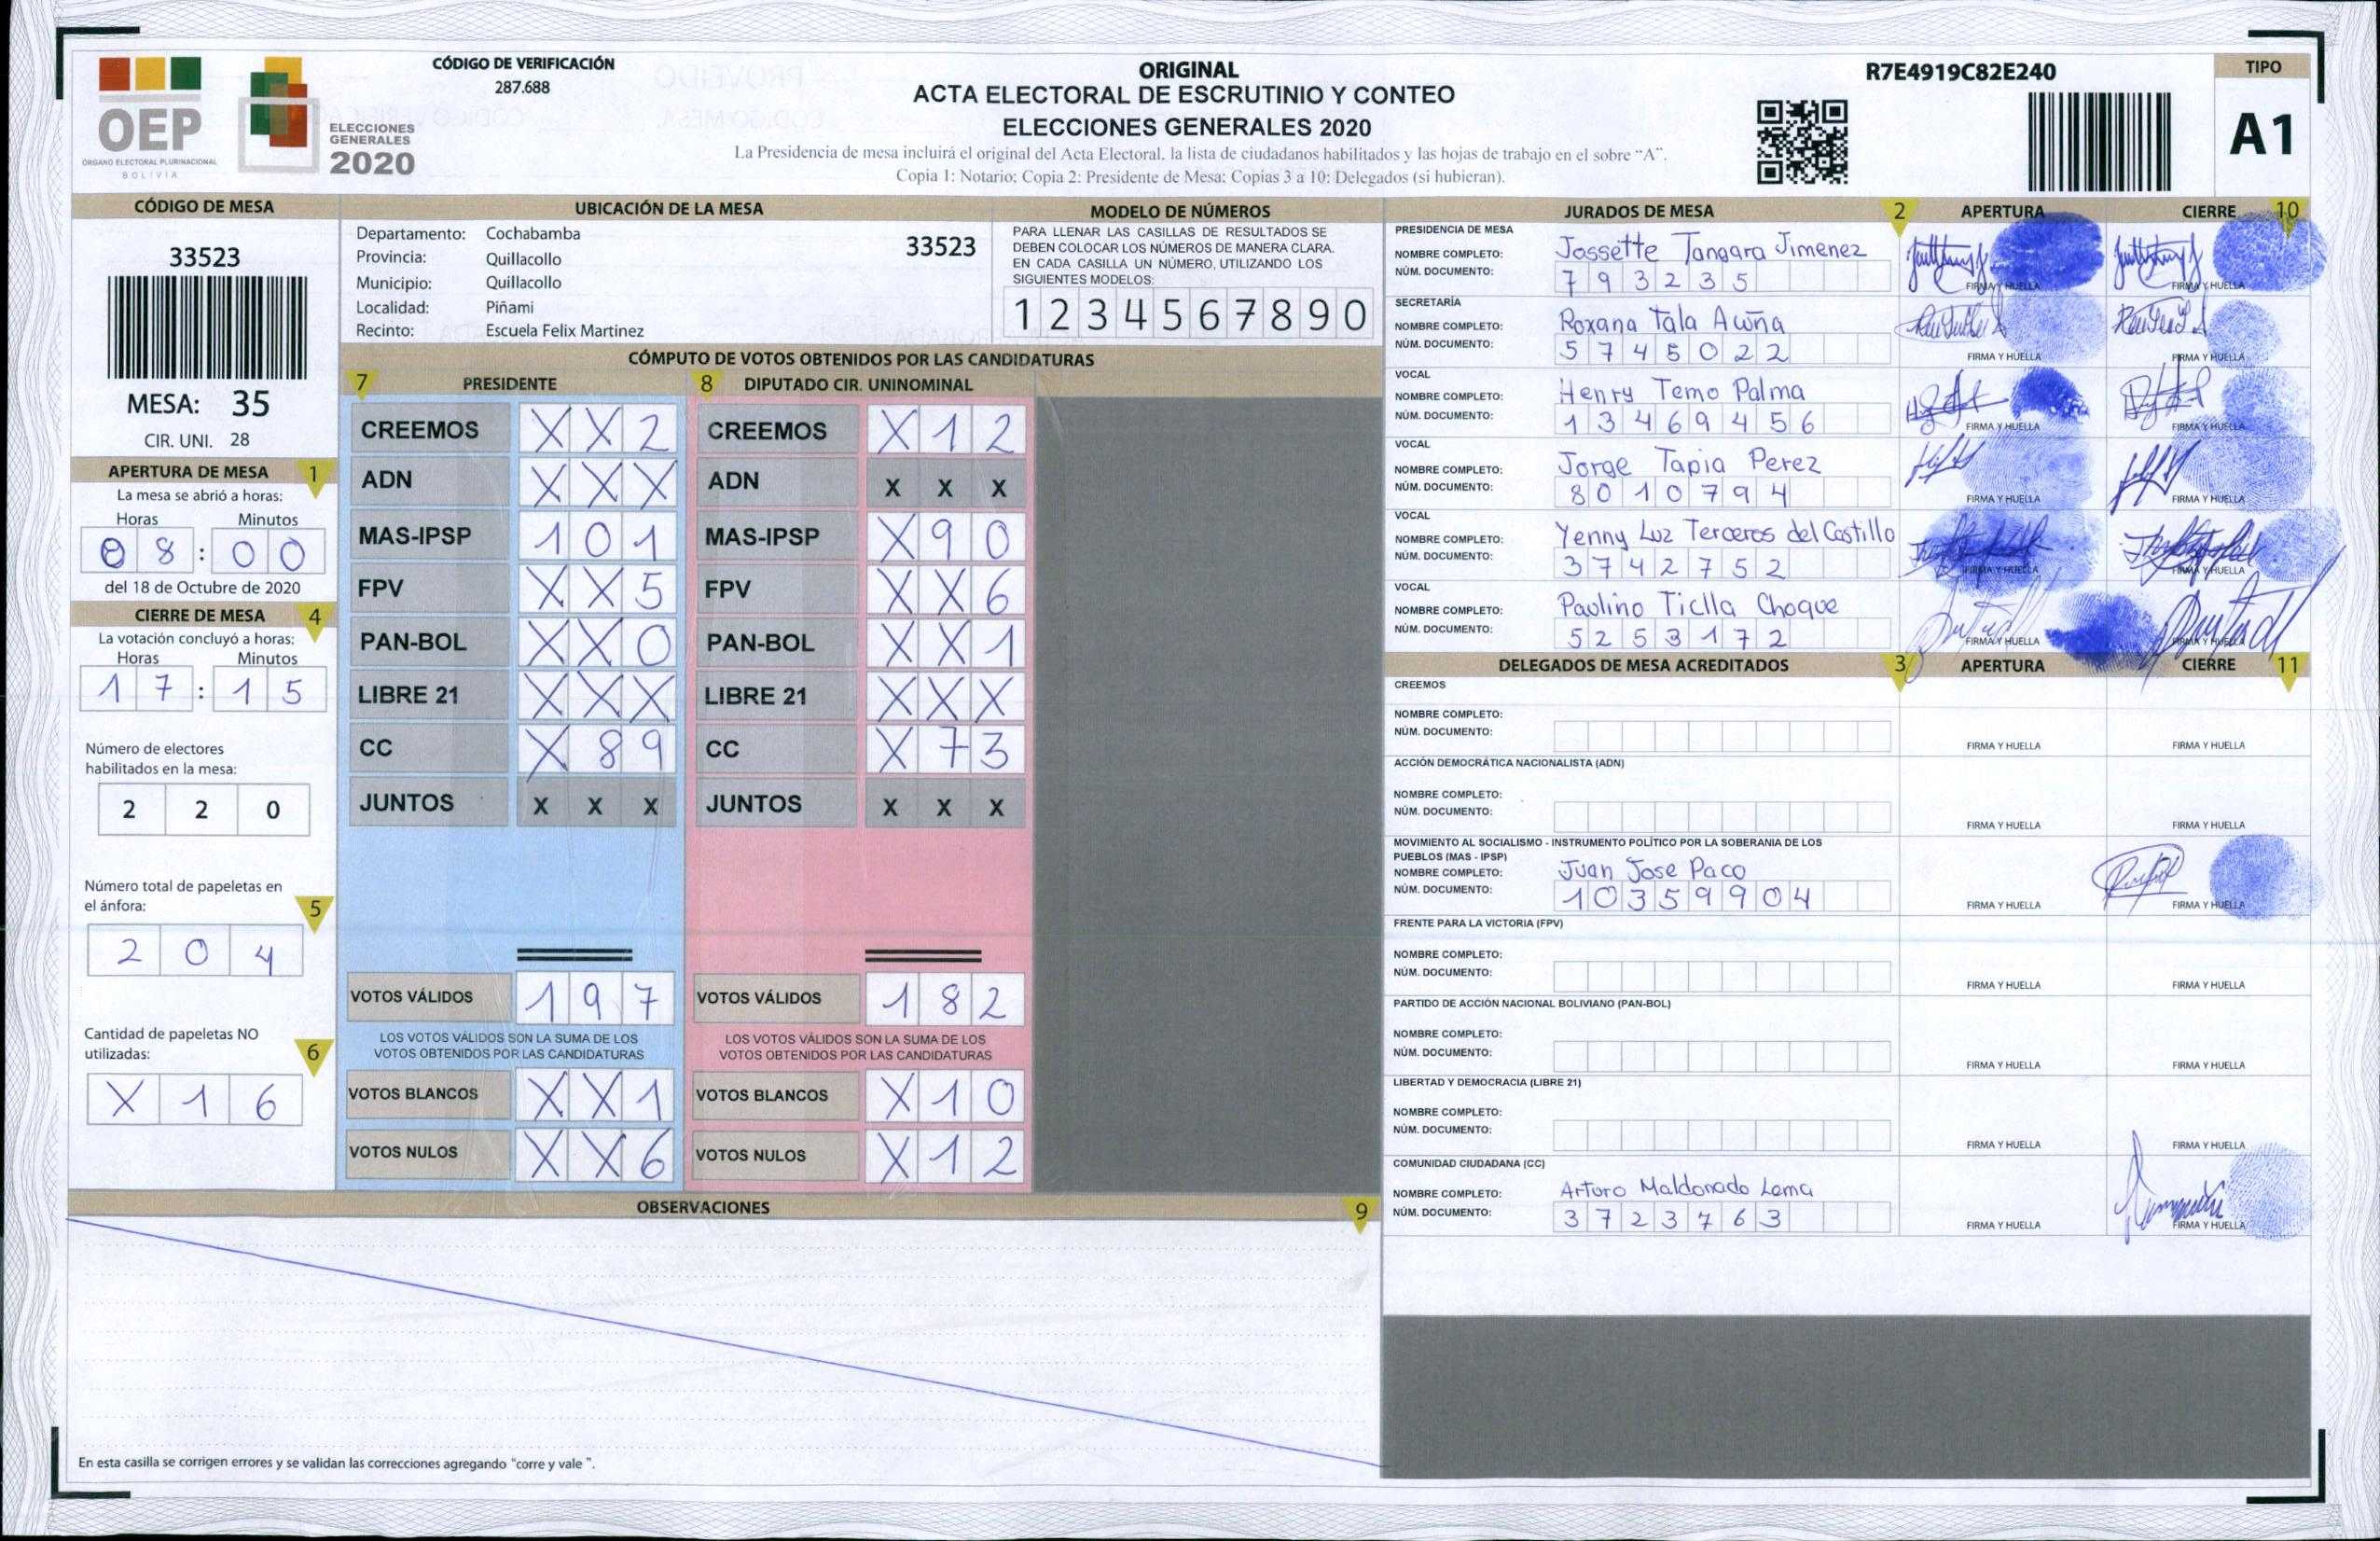 OEP
ÓRGANO ELECTORAL PLURINACIONAL
BOLIVIA
ELECCIONES
GENERALES
2020
CÓDIGO DE VERIFICACIÓN
287.688
ORIGINAL
ACTA ELECTORAL DE ESCRUTINIO Y CONTEO
ELECCIONES GENERALES 2020
La Presidencia de mesa incluirá el original del Acta Electoral, la lista de ciudadanos habilitados y las hojas de trabajo en el sobre "A".
Copia 1: Notario; Copia 2: Presidente de Mesa; Copias 3 a 10: Delegados (si hubieran).
R7E4919C82E240
TIPO
A1
CÓDIGO DE MESA
33523
MESA: 35
CIR. UNI. 28
APERTURA DE MESA 1
La mesa se abrió a horas:
Horas Minutos
08:00
del 18 de Octubre de 2020
CIERRE DE MESA 4
La votación concluyó a horas:
Horas Minutos
17:15
Número de electores
habilitados en la mesa:
2 2 0
Número total de papeletas en
el ánfora: 5
2 0 4
Cantidad de papeletas NO
utilizadas: 6
X 1 6
UBICACIÓN DE LA MESA
Departamento: Cochabamba
Provincia: Quillacollo
Municipio: Quillacollo
Localidad: Piñami
Recinto: Escuela Felix Martinez
33523
MODELO DE NÚMEROS
PARA LLENAR LAS CASILLAS DE RESULTADOS SE
DEBEN COLOCAR LOS NÚMEROS DE MANERA CLARA.
EN CADA CASILLA UN NÚMERO, UTILIZANDO LOS
SIGUIENTES MODELOS:
1 2 3 4 5 6 7 8 9 0
CÓMPUTO DE VOTOS OBTENIDOS POR LAS CANDIDATURAS
7 PRESIDENTE 8 DIPUTADO CIR. UNINOMINAL
CREEMOS X X 2 CREEMOS X 1 2
ADN X X X ADN X X X
MAS-IPSP 1 0 1 MAS-IPSP X 9 0
FPV X X 5 FPV X X 6
PAN-BOL X X 0 PAN-BOL X X 1
LIBRE 21 X X X LIBRE 21 X X X
CC X 8 9 CC X 7 3
JUNTOS X X X JUNTOS X X X
VOTOS VÁLIDOS 1 9 7 VOTOS VÁLIDOS 1 8 2
LOS VOTOS VÁLIDOS SON LA SUMA DE LOS LOS VOTOS VÁLIDOS SON LA SUMA DE LOS
VOTOS OBTENIDOS POR LAS CANDIDATURAS VOTOS OBTENIDOS POR LAS CANDIDATURAS
VOTOS BLANCOS X X 1 VOTOS BLANCOS X 1 0
VOTOS NULOS X X 6 VOTOS NULOS X 1 2
OBSERVACIONES 9
En esta casilla se corrigen errores y se validan las correcciones agregando "corre y vale ".
JURADOS DE MESA 2 APERTURA CIERRE 10
PRESIDENCIA DE MESA
NOMBRE COMPLETO: Jossette Tangara Jimenez
NÚM. DOCUMENTO: 7 9 3 2 3 5
FIRMA Y HUELLA FIRMA Y HUELLA
SECRETARÍA
NOMBRE COMPLETO: Roxana Tala Acuña
NÚM. DOCUMENTO: 5 7 4 5 0 2 2
FIRMA Y HUELLA FIRMA Y HUELLA
VOCAL
NOMBRE COMPLETO: Henry Temo Palma
NÚM. DOCUMENTO: 1 3 4 6 9 4 5 6
FIRMA Y HUELLA FIRMA Y HUELLA
VOCAL
NOMBRE COMPLETO: Jorge Tapia Perez
NÚM. DOCUMENTO: 8 0 1 0 7 9 4
FIRMA Y HUELLA FIRMA Y HUELLA
VOCAL
NOMBRE COMPLETO: Yenny Luz Terceros del Castillo
NÚM. DOCUMENTO: 3 7 4 2 7 5 2
FIRMA Y HUELLA FIRMA Y HUELLA
VOCAL
NOMBRE COMPLETO: Paulino Ticlla Choque
NÚM. DOCUMENTO: 5 2 5 3 1 7 2
FIRMA Y HUELLA FIRMA Y HUELLA
DELEGADOS DE MESA ACREDITADOS 3 APERTURA CIERRE 11
CREEMOS
NOMBRE COMPLETO:
NÚM. DOCUMENTO:
FIRMA Y HUELLA FIRMA Y HUELLA
ACCIÓN DEMOCRÁTICA NACIONALISTA (ADN)
NOMBRE COMPLETO:
NÚM. DOCUMENTO:
FIRMA Y HUELLA FIRMA Y HUELLA
MOVIMIENTO AL SOCIALISMO - INSTRUMENTO POLÍTICO POR LA SOBERANIA DE LOS
PUEBLOS (MAS - IPSP)
NOMBRE COMPLETO: Juan Jose Paco
NÚM. DOCUMENTO: 1 0 3 5 9 9 0 4
FIRMA Y HUELLA FIRMA Y HUELLA
FRENTE PARA LA VICTORIA (FPV)
NOMBRE COMPLETO:
NÚM. DOCUMENTO:
FIRMA Y HUELLA FIRMA Y HUELLA
PARTIDO DE ACCIÓN NACIONAL BOLIVIANO (PAN-BOL)
NOMBRE COMPLETO:
NÚM. DOCUMENTO:
FIRMA Y HUELLA FIRMA Y HUELLA
LIBERTAD Y DEMOCRACIA (LIBRE 21)
NOMBRE COMPLETO:
NÚM. DOCUMENTO:
FIRMA Y HUELLA FIRMA Y HUELLA
COMUNIDAD CIUDADANA (CC)
NOMBRE COMPLETO: Arturo Maldonado Lema
NÚM. DOCUMENTO: 3 7 2 3 7 6 3
FIRMA Y HUELLA FIRMA Y HUELLA